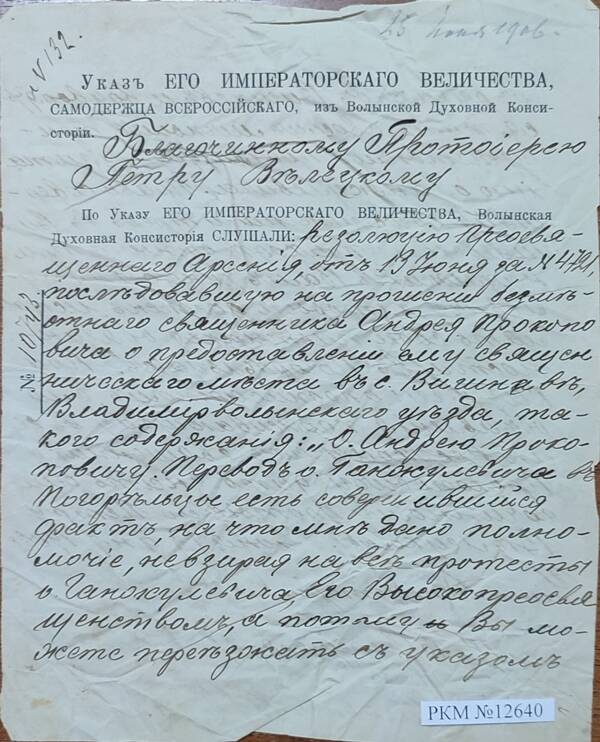 25 Іюня 1906.
V 132.
Указъ ЕГО ИМПЕРАТОРСКАГО ВЕЛИЧЕСТВА,
САМОДЕРЖЦА ВСЕРОССІЙСКАГО, изъ Волынской Духовной Конси-
сторіи. Благочинному Протоіерею
Петру Бѣлецкому
По Указу ЕГО ИМПЕРАТОРСКАГО ВЕЛИЧЕСТВА, Волынская
Духовная Консисторія СЛУШАЛИ: резолюцію Преосвя-
щеннаго Арсенія, отъ 19 Іюня за № 4721,
послѣдовавшую на прошеніи безмѣ-
стнаго священника Андрея Прокопо-
вича о предоставленіи ему священ
ническаго мѣста въ с.
Владимірволынскаго уѣзда, та-
кого содержанія: „О. Андрею Проко-
повичу. Переводъ о. Ганокулевича въ
Погорѣльцы есть совершившійся
фактъ, на что мнѣ дано полно-
мочіе, невзирая на всѣ протесты
о. Ганокулевича, Его Высокопреосвя
щенствомъ, а потому Вы мо-
жете переѣзжать съ указомъ
№ 10743
РКМ №12640